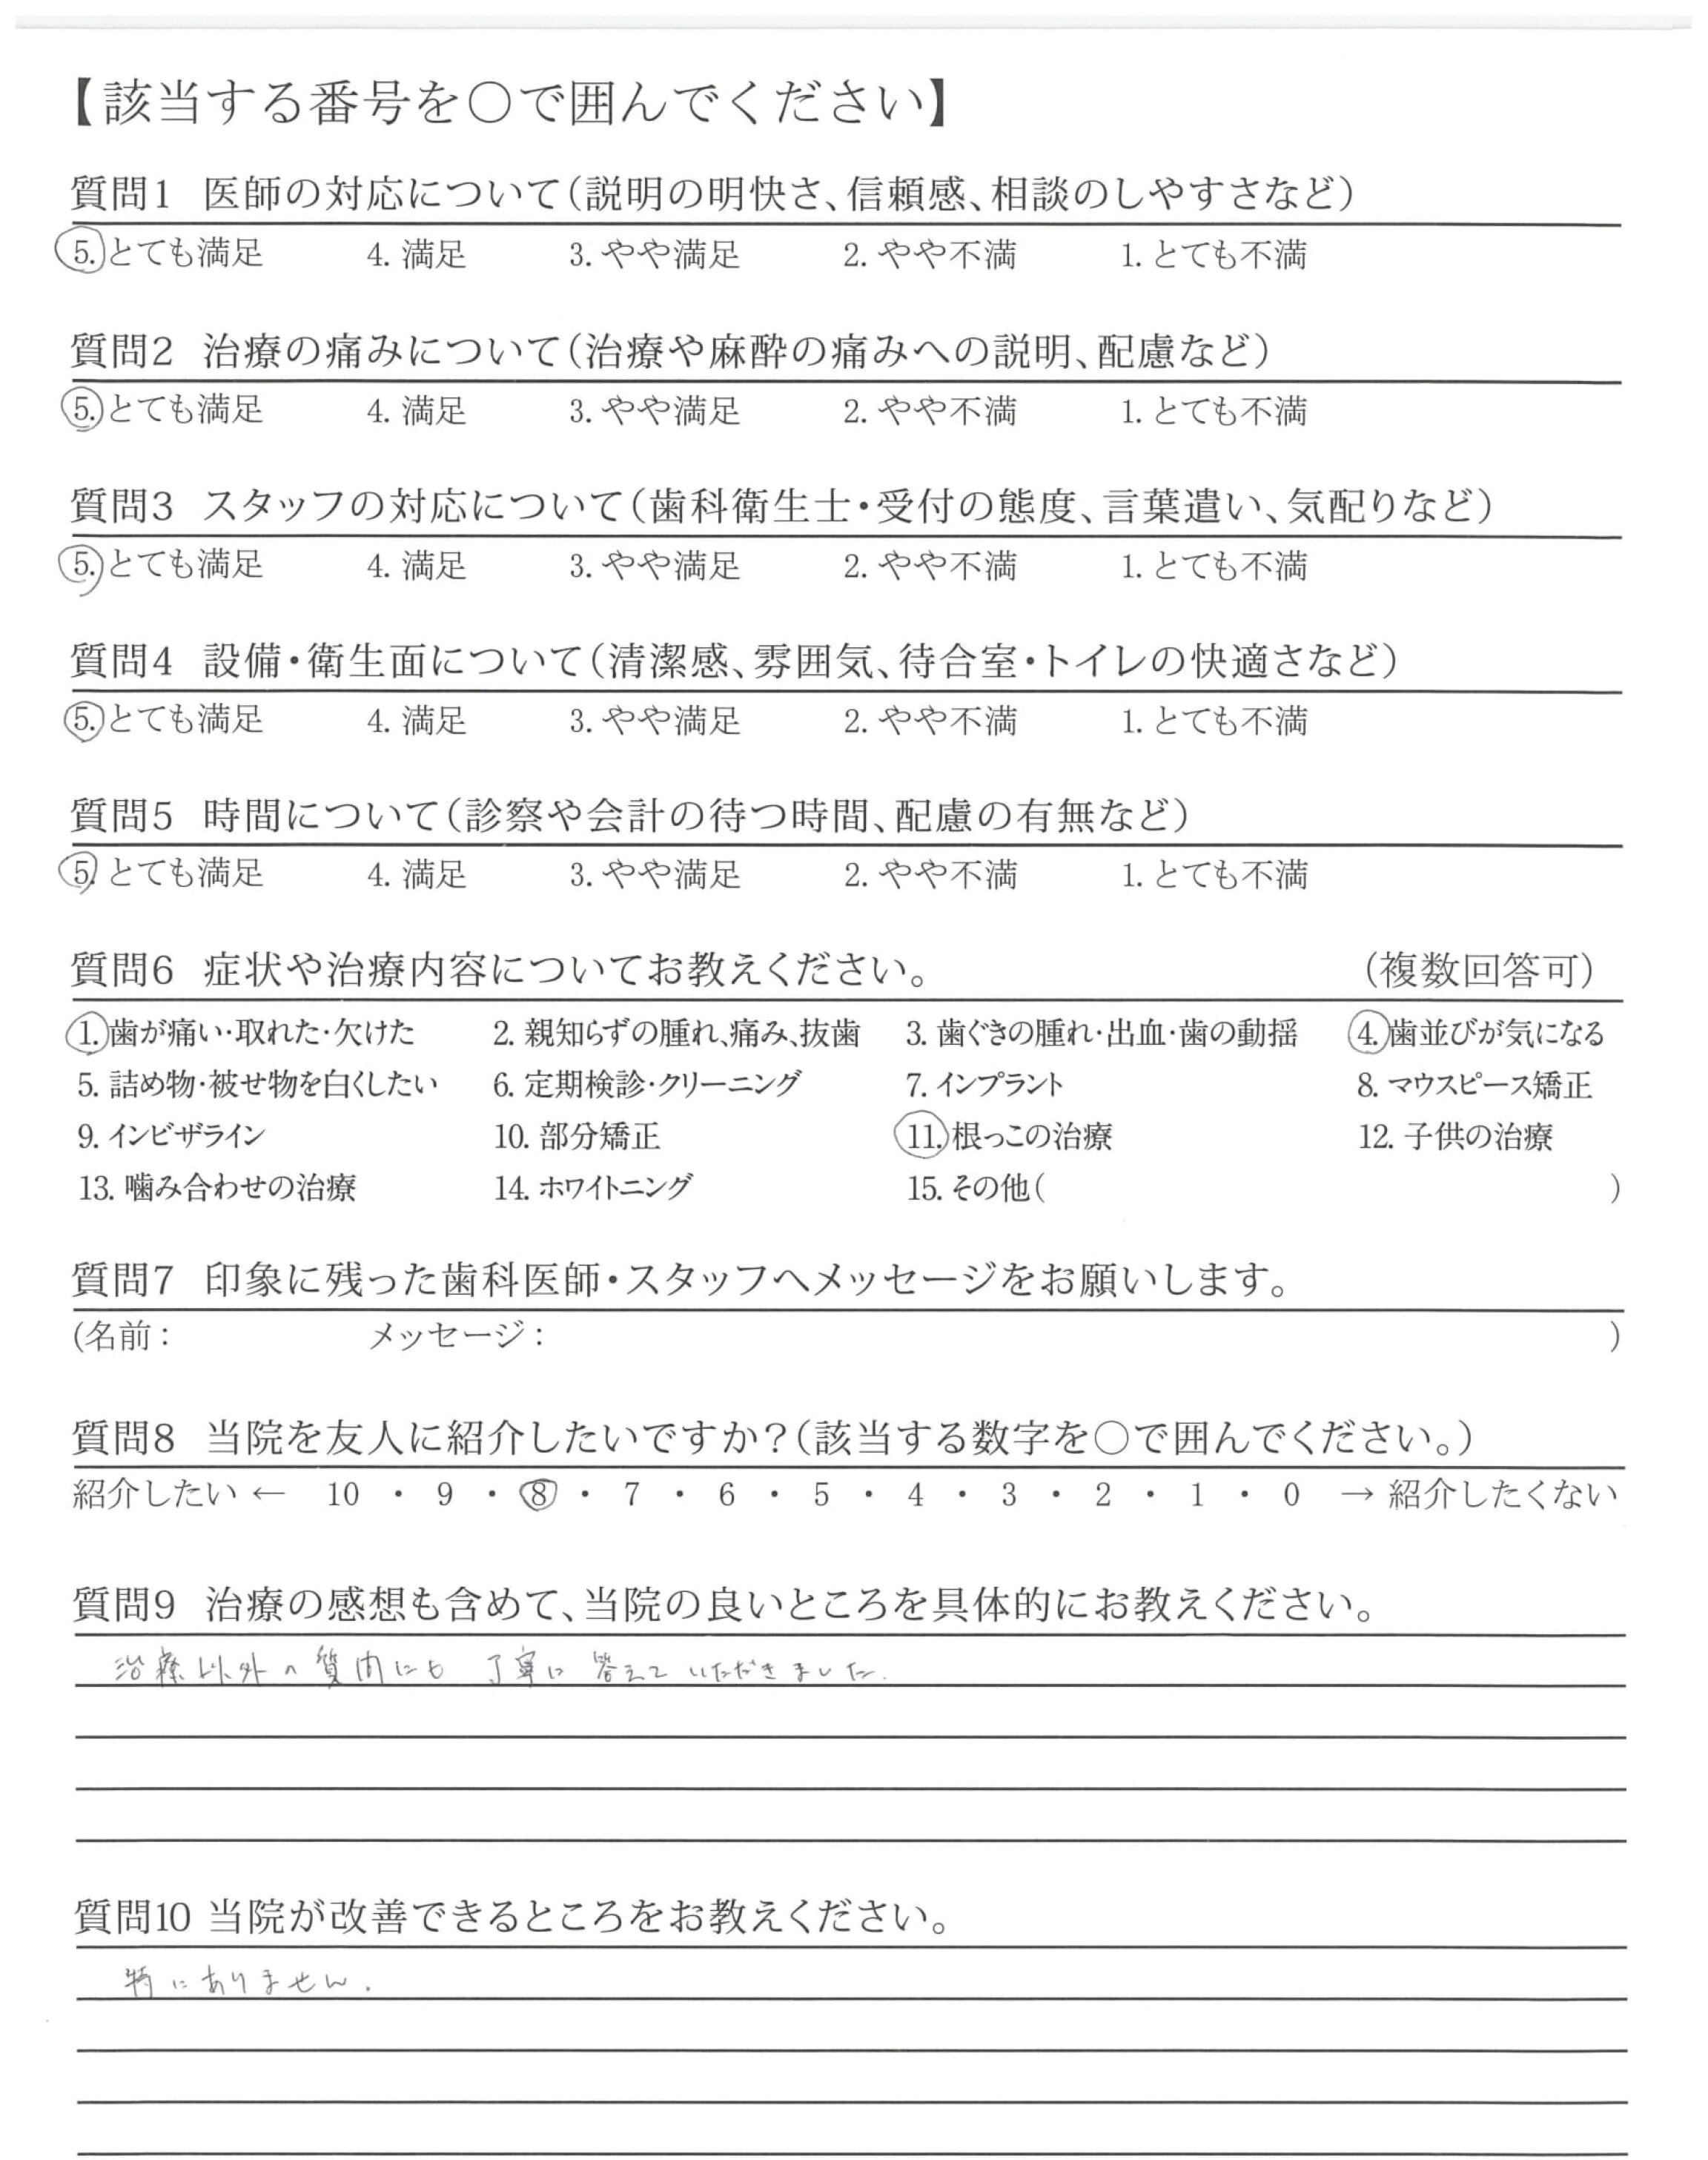 【該当する番号を〇で囲んでください】
質問1 医師の対応について(説明の明快さ、信頼感、相談のしやすさなど)
5. とても満足 4. 満足 3. やや満足 2. やや不満 1. とても不満
質問2 治療の痛みについて(治療や麻酔の痛みへの説明、配慮など)
5. とても満足 4. 満足 3. やや満足 2. やや不満 1. とても不満
質問3 スタッフの対応について(歯科衛生士・受付の態度、言葉遣い、気配りなど)
5. とても満足 4. 満足 3. やや満足 2. やや不満 1. とても不満
質問4 設備・衛生面について(清潔感、雰囲気、待合室・トイレの快適さなど)
5. とても満足 4. 満足 3. やや満足 2. やや不満 1. とても不満
質問5 時間について(診察や会計の待つ時間、配慮の有無など)
5. とても満足 4. 満足 3. やや満足 2. やや不満 1. とても不満
質問6 症状や治療内容についてお教えください。 (複数回答可)
1. 歯が痛い・取れた・欠けた 2. 親知らずの腫れ、痛み、抜歯 3. 歯ぐきの腫れ・出血・歯の動揺 4. 歯並びが気になる
5. 詰め物・被せ物を白くしたい 6. 定期検診・クリーニング 7. インプラント 8. マウスピース矯正
9. インビザライン 10. 部分矯正 11. 根っこの治療 12. 子供の治療
13. 噛み合わせの治療 14. ホワイトニング 15. その他( )
質問7 印象に残った歯科医師・スタッフへメッセージをお願いします。
(名前: メッセージ: )
質問8 当院を友人に紹介したいですか?(該当する数字を〇で囲んでください。)
紹介したい ← 10 ・ 9 ・ 8 ・ 7 ・ 6 ・ 5 ・ 4 ・ 3 ・ 2 ・ 1 ・ 0 → 紹介したくない
質問9 治療の感想も含めて、当院の良いところを具体的にお教えください。
治療以外の質問にも 丁寧に 答えて いただきました.
質問10 当院が改善できるところをお教えください。
特にありません.